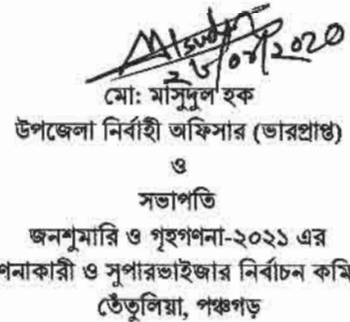 ২৮/০৭/২০২০
মো: মাসুদুল হক
উপজেলা নির্বাহী অফিসার (ভারপ্রাপ্ত)
ও
সভাপতি
জনশুমারি ও গৃহগণনা-২০২১ এর
ণনাকারী ও সুপারভাইজার নির্বাচন কমি
তেঁতুলিয়া, পঞ্চগড়